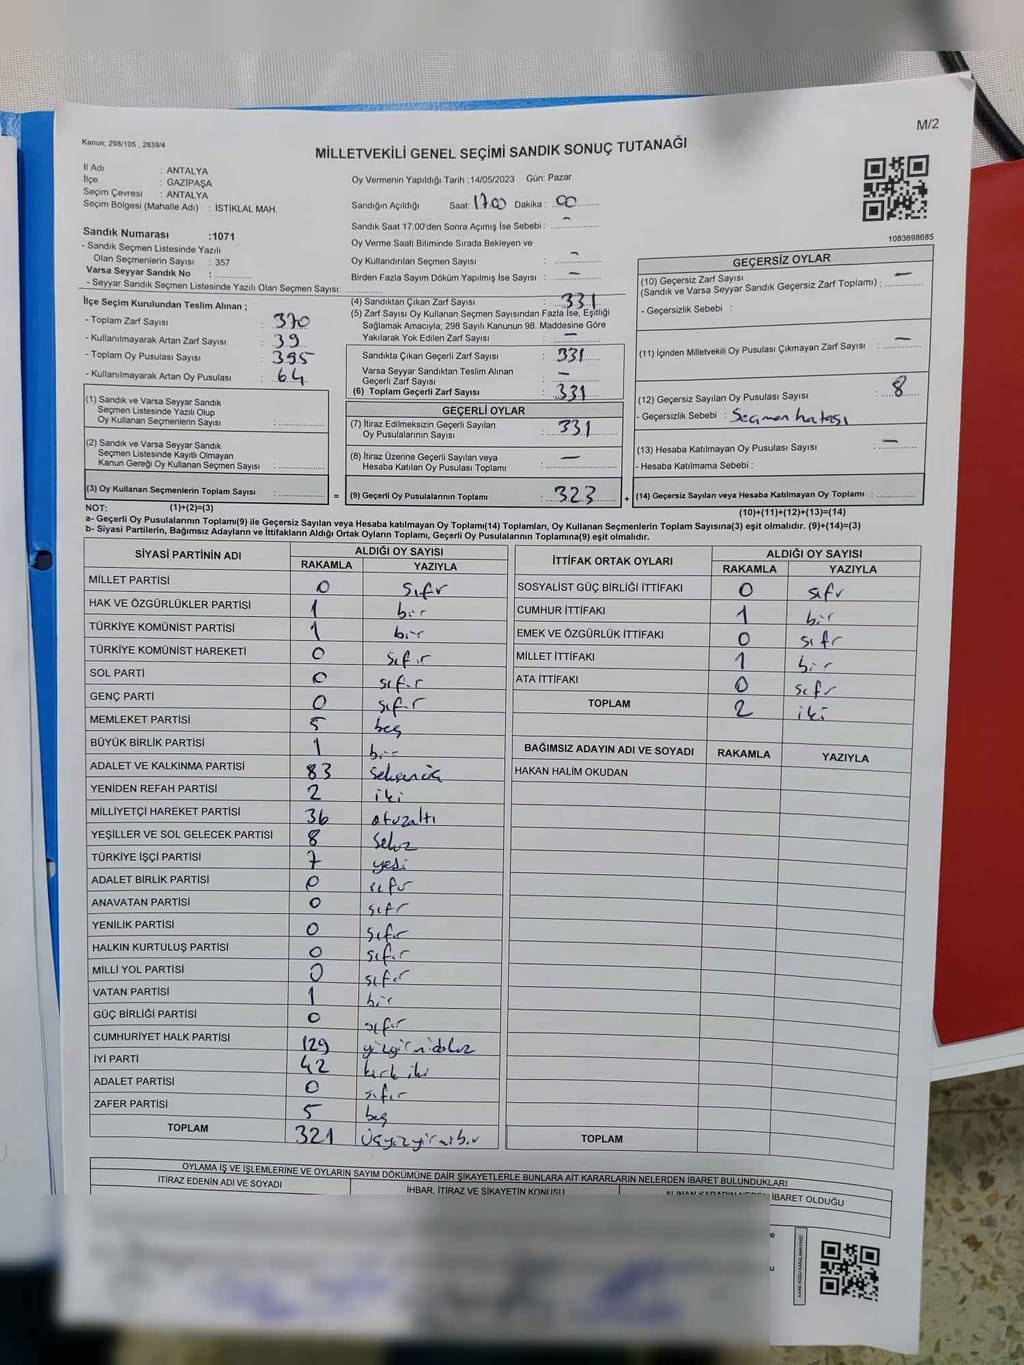 M/2
Kanun; 298/105 , 2839/4
MİLLETVEKİLİ GENEL SEÇİMİ SANDIK SONUÇ TUTANAĞI
İl Adı : ANTALYA
İlçe : GAZİPAŞA
Seçim Çevresi : ANTALYA
Seçim Bölgesi (Mahalle Adı) : İSTİKLAL MAH.
Sandık Numarası :1071
- Sandık Seçmen Listesinde Yazılı
Olan Seçmenlerin Sayısı : 357
Varsa Seyyar Sandık No :
- Seyyar Sandık Seçmen Listesinde Yazılı Olan Seçmen Sayısı:
Oy Vermenin Yapıldığı Tarih :14/05/2023 Gün: Pazar
Sandığın Açıldığı Saat: 17.00 Dakika : 00
Sandık Saat 17:00'den Sonra Açımış İse Sebebi : -
Oy Verme Saati Bitiminde Sırada Bekleyen ve
Oy Kullandırılan Seçmen Sayısı : -
Birden Fazla Sayım Döküm Yapılmış İse Sayısı : -
1083698685
İlçe Seçim Kurulundan Teslim Alınan ;
- Toplam Zarf Sayısı : 370
- Kullanılmayarak Artan Zarf Sayısı : 39
- Toplam Oy Pusulası Sayısı : 395
- Kullanılmayarak Artan Oy Pusulası : 64
(1) Sandık ve Varsa Seyyar Sandık
Seçmen Listesinde Yazılı Olup
Oy Kullanan Seçmenlerin Sayısı :
(2) Sandık ve Varsa Seyyar Sandık
Seçmen Listesinde Kayıtlı Olmayan
Kanun Gereği Oy Kullanan Seçmen Sayısı :
(3) Oy Kullanan Seçmenlerin Toplam Sayısı :
(4) Sandıktan Çıkan Zarf Sayısı : 331
(5) Zarf Sayısı Oy Kullanan Seçmen Sayısından Fazla İse, Eşitliği
Sağlamak Amacıyla; 298 Sayılı Kanunun 98. Maddesine Göre
Yakılarak Yok Edilen Zarf Sayısı : -
Sandıkta Çıkan Geçerli Zarf Sayısı : 331
Varsa Seyyar Sandıktan Teslim Alınan
Geçerli Zarf Sayısı : -
(6) Toplam Geçerli Zarf Sayısı : 331
GEÇERLİ OYLAR
(7) İtiraz Edilmeksizin Geçerli Sayılan
Oy Pusulalarının Sayısı : 331
(8) İtiraz Üzerine Geçerli Sayılan veya
Hesaba Katılan Oy Pusulası Toplamı : -
= (9) Geçerli Oy Pusulalarının Toplamı : 323 +
GEÇERSİZ OYLAR
(10) Geçersiz Zarf Sayısı
(Sandık ve Varsa Seyyar Sandık Geçersiz Zarf Toplamı) : -
- Geçersizlik Sebebi :
(11) İçinden Milletvekili Oy Pusulası Çıkmayan Zarf Sayısı : -
(12) Geçersiz Sayılan Oy Pusulası Sayısı : 8
- Geçersizlik Sebebi : Seçmen hatası
(13) Hesaba Katılmayan Oy Pusulası Sayısı : -
- Hesaba Katılmama Sebebi :
(14) Geçersiz Sayılan veya Hesaba Katılmayan Oy Toplamı :
NOT: (1)+(2)=(3) (10)+(11)+(12)+(13)=(14)
a- Geçerli Oy Pusulalarının Toplamı(9) ile Geçersiz Sayılan veya Hesaba katılmayan Oy Toplamı(14) Toplamları, Oy Kullanan Seçmenlerin Toplam Sayısına(3) eşit olmalıdır. (9)+(14)=(3)
b- Siyasi Partilerin, Bağımsız Adayların ve İttifakların Aldığı Ortak Oyların Toplamı, Geçerli Oy Pusulalarının Toplamına(9) eşit olmalıdır.
SİYASİ PARTİNİN ADI ALDIĞI OY SAYISI
RAKAMLA YAZIYLA
MİLLET PARTİSİ 0 sıfır
HAK VE ÖZGÜRLÜKLER PARTİSİ 1 bir
TÜRKİYE KOMÜNİST PARTİSİ 1 bir
TÜRKİYE KOMÜNİST HAREKETİ 0 sıfır
SOL PARTİ 0 sıfır
GENÇ PARTİ 0 sıfır
MEMLEKET PARTİSİ 5 beş
BÜYÜK BİRLİK PARTİSİ 1 bir
ADALET VE KALKINMA PARTİSİ 83 seksenüç
YENİDEN REFAH PARTİSİ 2 iki
MİLLİYETÇİ HAREKET PARTİSİ 36 otuzaltı
YEŞİLLER VE SOL GELECEK PARTİSİ 8 sekiz
TÜRKİYE İŞÇİ PARTİSİ 7 yedi
ADALET BİRLİK PARTİSİ 0 sıfır
ANAVATAN PARTİSİ 0 sıfır
YENİLİK PARTİSİ 0 sıfır
HALKIN KURTULUŞ PARTİSİ 0 sıfır
MİLLİ YOL PARTİSİ 0 sıfır
VATAN PARTİSİ 1 bir
GÜÇ BİRLİĞİ PARTİSİ 0 sıfır
CUMHURİYET HALK PARTİSİ 129 yüzyirmidokuz
İYİ PARTİ 42 kırkiki
ADALET PARTİSİ 0 sıfır
ZAFER PARTİSİ 5 beş
TOPLAM 321 üçyüzyirmibir
İTTİFAK ORTAK OYLARI ALDIĞI OY SAYISI
RAKAMLA YAZIYLA
SOSYALİST GÜÇ BİRLİĞİ İTTİFAKI 0 sıfır
CUMHUR İTTİFAKI 1 bir
EMEK VE ÖZGÜRLÜK İTTİFAKI 0 sıfır
MİLLET İTTİFAKI 1 bir
ATA İTTİFAKI 0 sıfır
TOPLAM 2 iki
BAĞIMSIZ ADAYIN ADI VE SOYADI RAKAMLA YAZIYLA
HAKAN HALİM OKUDAN
TOPLAM
OYLAMA İŞ VE İŞLEMLERİNE VE OYLARIN SAYIM DÖKÜMÜNE DAİR ŞİKAYETLERLE BUNLARA AİT KARARLARIN NELERDEN İBARET BULUNDUKLARI
İTİRAZ EDENİN ADI VE SOYADI İHBAR, İTİRAZ VE ŞİKAYETİN KONUSU ALINAN KARARIN NEDEN İBARET OLDUĞU